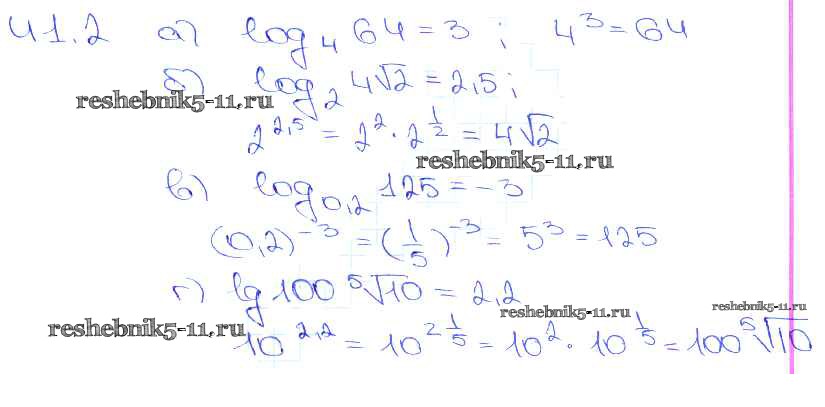 41.2 а) log₄ 64 = 3 ; 4³ = 64
б) log₂ 4√2 = 2,5 ;
reshebnik5-11.ru
2^2,5 = 2² · 2^(1/2) = 4√2
reshebnik5-11.ru
в) log₀,₂ 125 = -3
(0,2)⁻³ = (1/5)⁻³ = 5³ = 125
г) lg 100 ⁵√10 = 2,2
reshebnik5-11.ru
reshebnik5-11.ru
reshebnik5-11.ru
10^2,2 = 10^(2 1/5) = 10² · 10^(1/5) = 100 ⁵√10